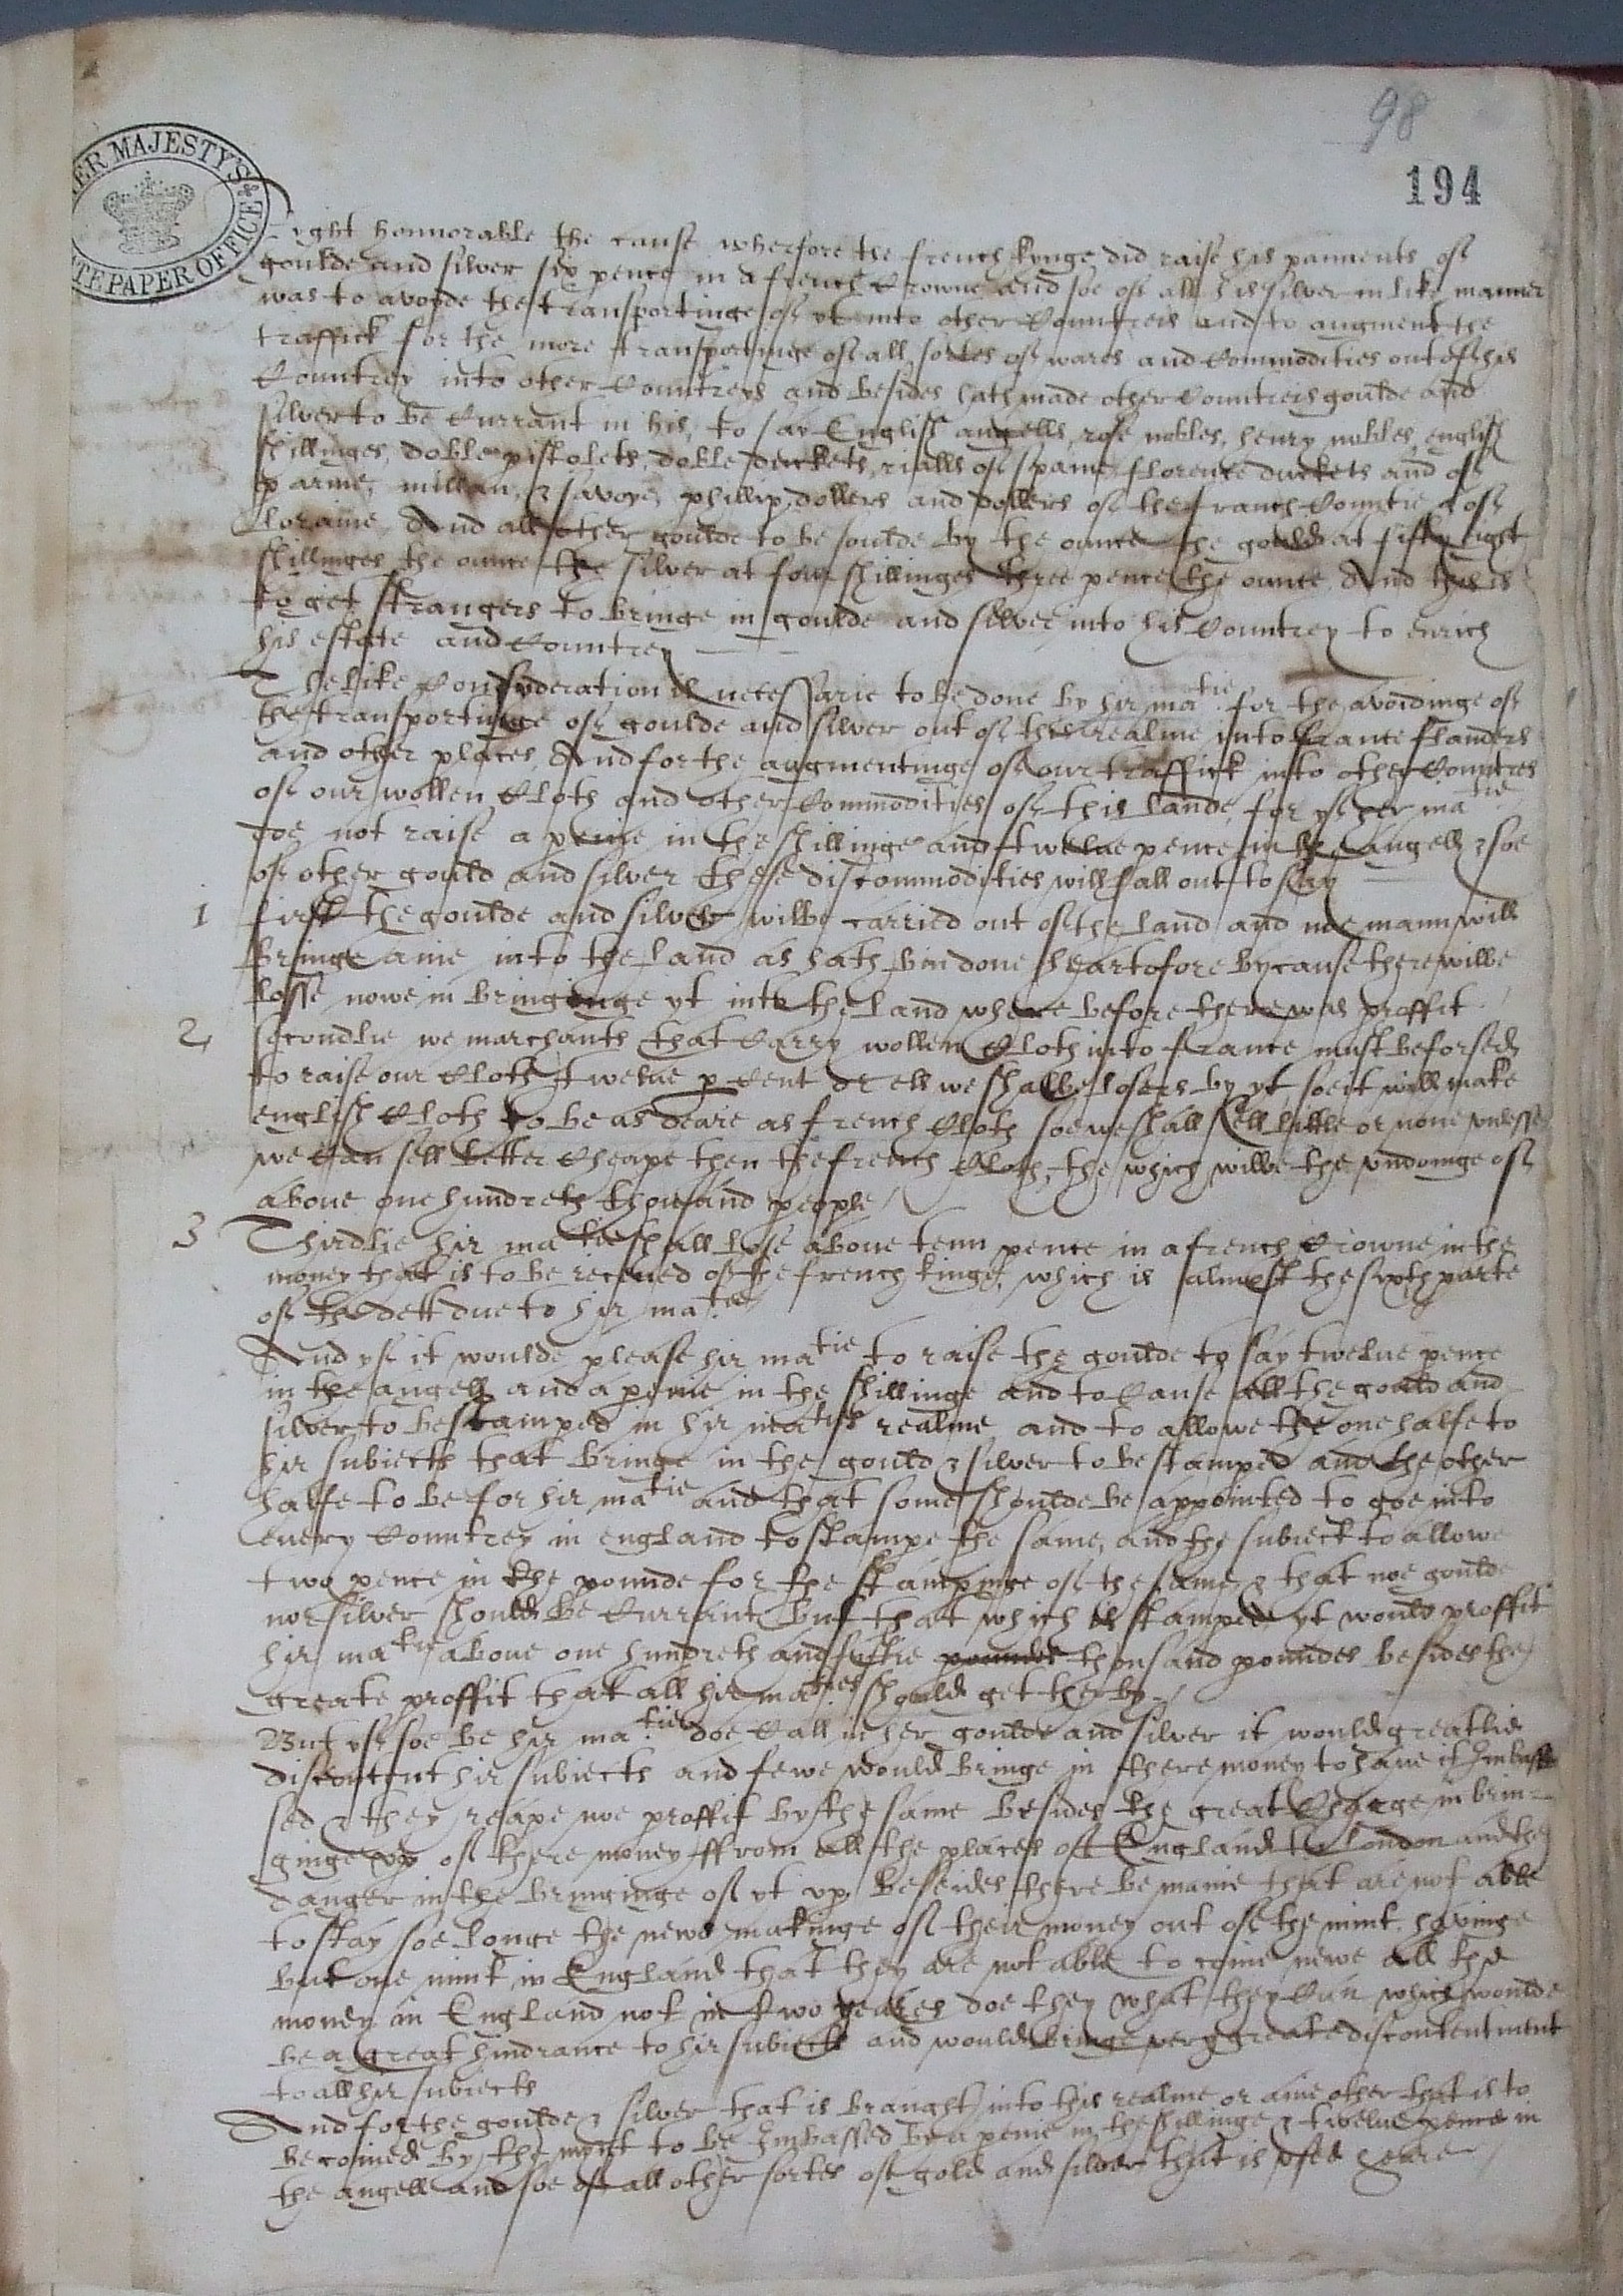 98
194
HER MAJESTY'S
STATE PAPER OFFICE
Right honnorable the cause wherfore the french kynge did raise his paiments of
goulde and silver six pence in a french Crowne and soe of all his silver in like manner
was to avoyde the transportinge of yt into other Countreis and to augment the
traffick for the more transportinge of all sortes of wares and Commodities out of his
Countrey into other Countreys and besides hath made other Countreis goulde and
silver to be Currant in his, to say English angells, rose nobles, henry nobles, english
shillinges, doble pistolets, doble duckets, rialls of spaine florence duckets and of
parme, millan, & savoye, phillip dollers and dollers of the franch Countie & of
Loraine, And all other goulde to be soulde by the ounce the gould at fifty eight
shillinges the ounce the silver at four shillinges three pence the ounce. And this is
to get strangers to bringe in goulde and silver into his Countrey to enrich
his estate and Countrey
The like Consyderation is necessarie to be done by hir matie for the avoidinge of
the transportinge of goulde and silver out of this realme into france flanders
and other places, And for the augmentinge of our traffick into other Countres
of our wollen Cloth and other Commodities of this lande, for yf her matie
doe not raise a penie in the shillinge and twelue pence in the angell & soe
of other gould and silver these discommodities will fall out to say
1 first the goulde and silver wilbe carried out of the land and noe mann will
bringe anie into the land as hath bin done heartofore bycause there wilbe
losse nowe in bringinge yt into the land where before there was proffit
2 secondlie we marchants that Carry wollen Cloth into france must be forsed
to raise our Cloth twelue p Cent or ell we shalbe losers by yt, soe it will make
english Cloth to be as deare as french Cloth soe we shall sell little or none vnlesse
we Can sell better Cheape then the french Cloth, the which wilbe the vndoinge of
aboue one hundreth thousand people
3 Thirdlie hir matie shall lose aboue tenn pence in a french Crowne in the
money that is to be receued of the french kinge, which is almost the sixth parte
of the dett due to hir matie
And yf it woulde please hir matie to raise the goulde to say twelue pence
in the angell and a penie in the shillinge and to Cause all the gould and
silver to be stamped in hir maties realme and to allowe the one halfe to
hir subiects that bringe in the gould & silver to be stamped and the other
halfe to be for hir matie and that some shoulde be appointed to goe into
euery Countrey in england to stampe the same, and the subiect to allowe
two pence in the pounde for the stampinge of the same & that noe goulde
nor silver should be Currant but that which is stamped yt would proffit
hir matie aboue one hundreth and fiftie poundes thousand poundes besides the
greate proffit that all hir maties should get therby
But yf soe be hir matie doe Call in her goulde and silver it would greatlie
discontent hir subiects and fewe would bringe in there money to haue it Imbas
sed & they reape noe proffit by the same besides the great Charge in brin-
ginge vp of there money ffrom all the places of England to London and the
danger in the bringinge of yt vp Beseides there be manie that are not able
to stay soe longe the newe makinge of their money out of the mint, havinge
but one mint in England that they are not able to coine newe all the
money in England not in two yeares doe they what they Can which woulde
be a great hindrance to hir subiects and would bringe very greate discontentment
to all hir subiects
And for the goulde & silver that is braught into this realme or anie other that is to
be coined by the mynt to be Imbassed by a penie in the shillinge & twelue pence in
the angell and soe of all other sortes of gold and silver that is vsed heare